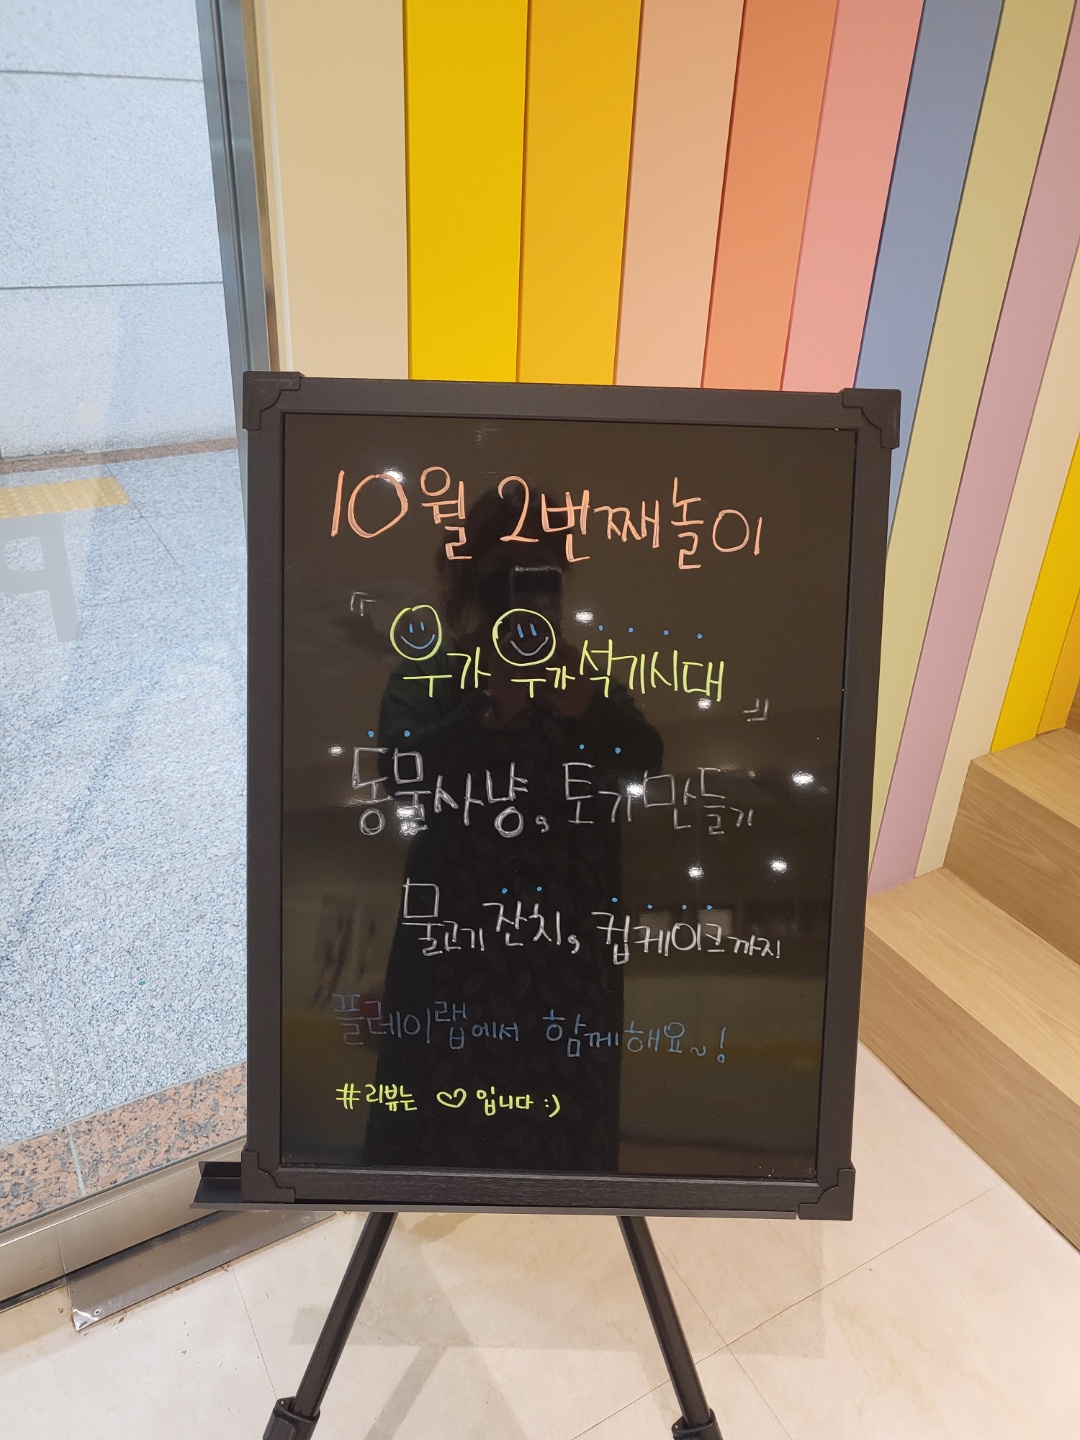 10월 2번째놀이
『우가 우가석기시대』
동물사냥, 토기만들기
물고기잔치, 컵케이크까지
플레이랩에서 함께해요~!
#리뷰는 ♡입니다 :)